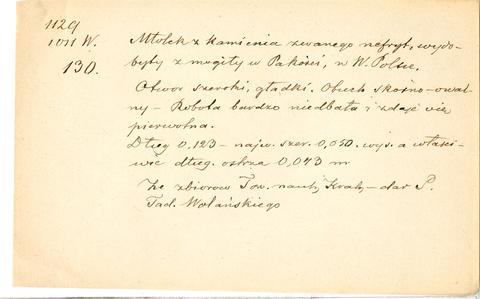 1129
1011 W.
130.
Młotek z kamienia zwanego nefryt, wydo-
byty z mogiły w Pakości, w W. Polsce.
Otwor szeroki, gładki. Obuch skośno-owal-
ny – Robota bardzo niedbała i zdaje się
pierwotna.
Dług 0,123 – najw. szer. 0,050. wys. a właści-
wie dług. ostrza 0,043 m
Ze zbiorow Tow. nauk, Krak, – dar P.
Tad. Wolańskiego